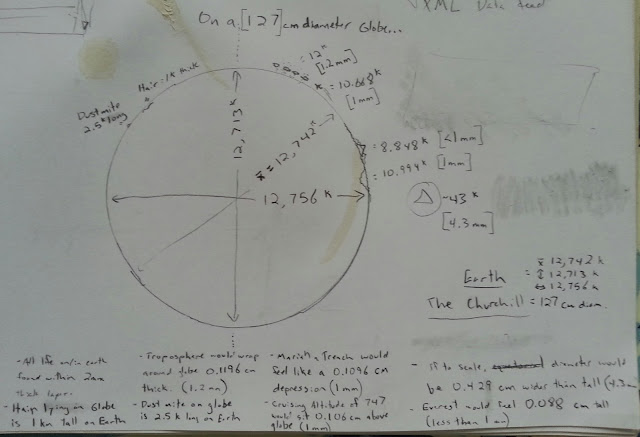 XML Data feed
On a [127] cm diameter Globe...
= 12k
[1.2mm]
= 10.668k
[1mm]
Hair - 1k thick
Dust mite
2.5k long
12,713k
x̄ = 12,742k
12,756k
= 8.848k [<1mm]
= 10.994k [1mm]
△ ~43k
[4.3mm]
Earth
x̄ 12,742k
= ↕ 12,713k
↔ 12,756k
The Churchill = 127 cm diam.
- All life on/in earth
found within 2mm
thick layer.
- Hair lying on Globe
is 1km tall on Earth
- Troposphere would wrap
around globe 0.1196 cm
thick. (1.2mm)
- Dust mite on globe
is 2.5k long on Earth
- Mariana Trench would
feel like a 0.1096 cm
depression (1mm)
- Cruising Altitude of 747
would sit 0.106 cm above
globe (1mm)
- If to scale, diameter would
be 0.429 cm wider than tall (4.3mm)
- Everest would feel 0.088 cm tall
(less than 1mm)